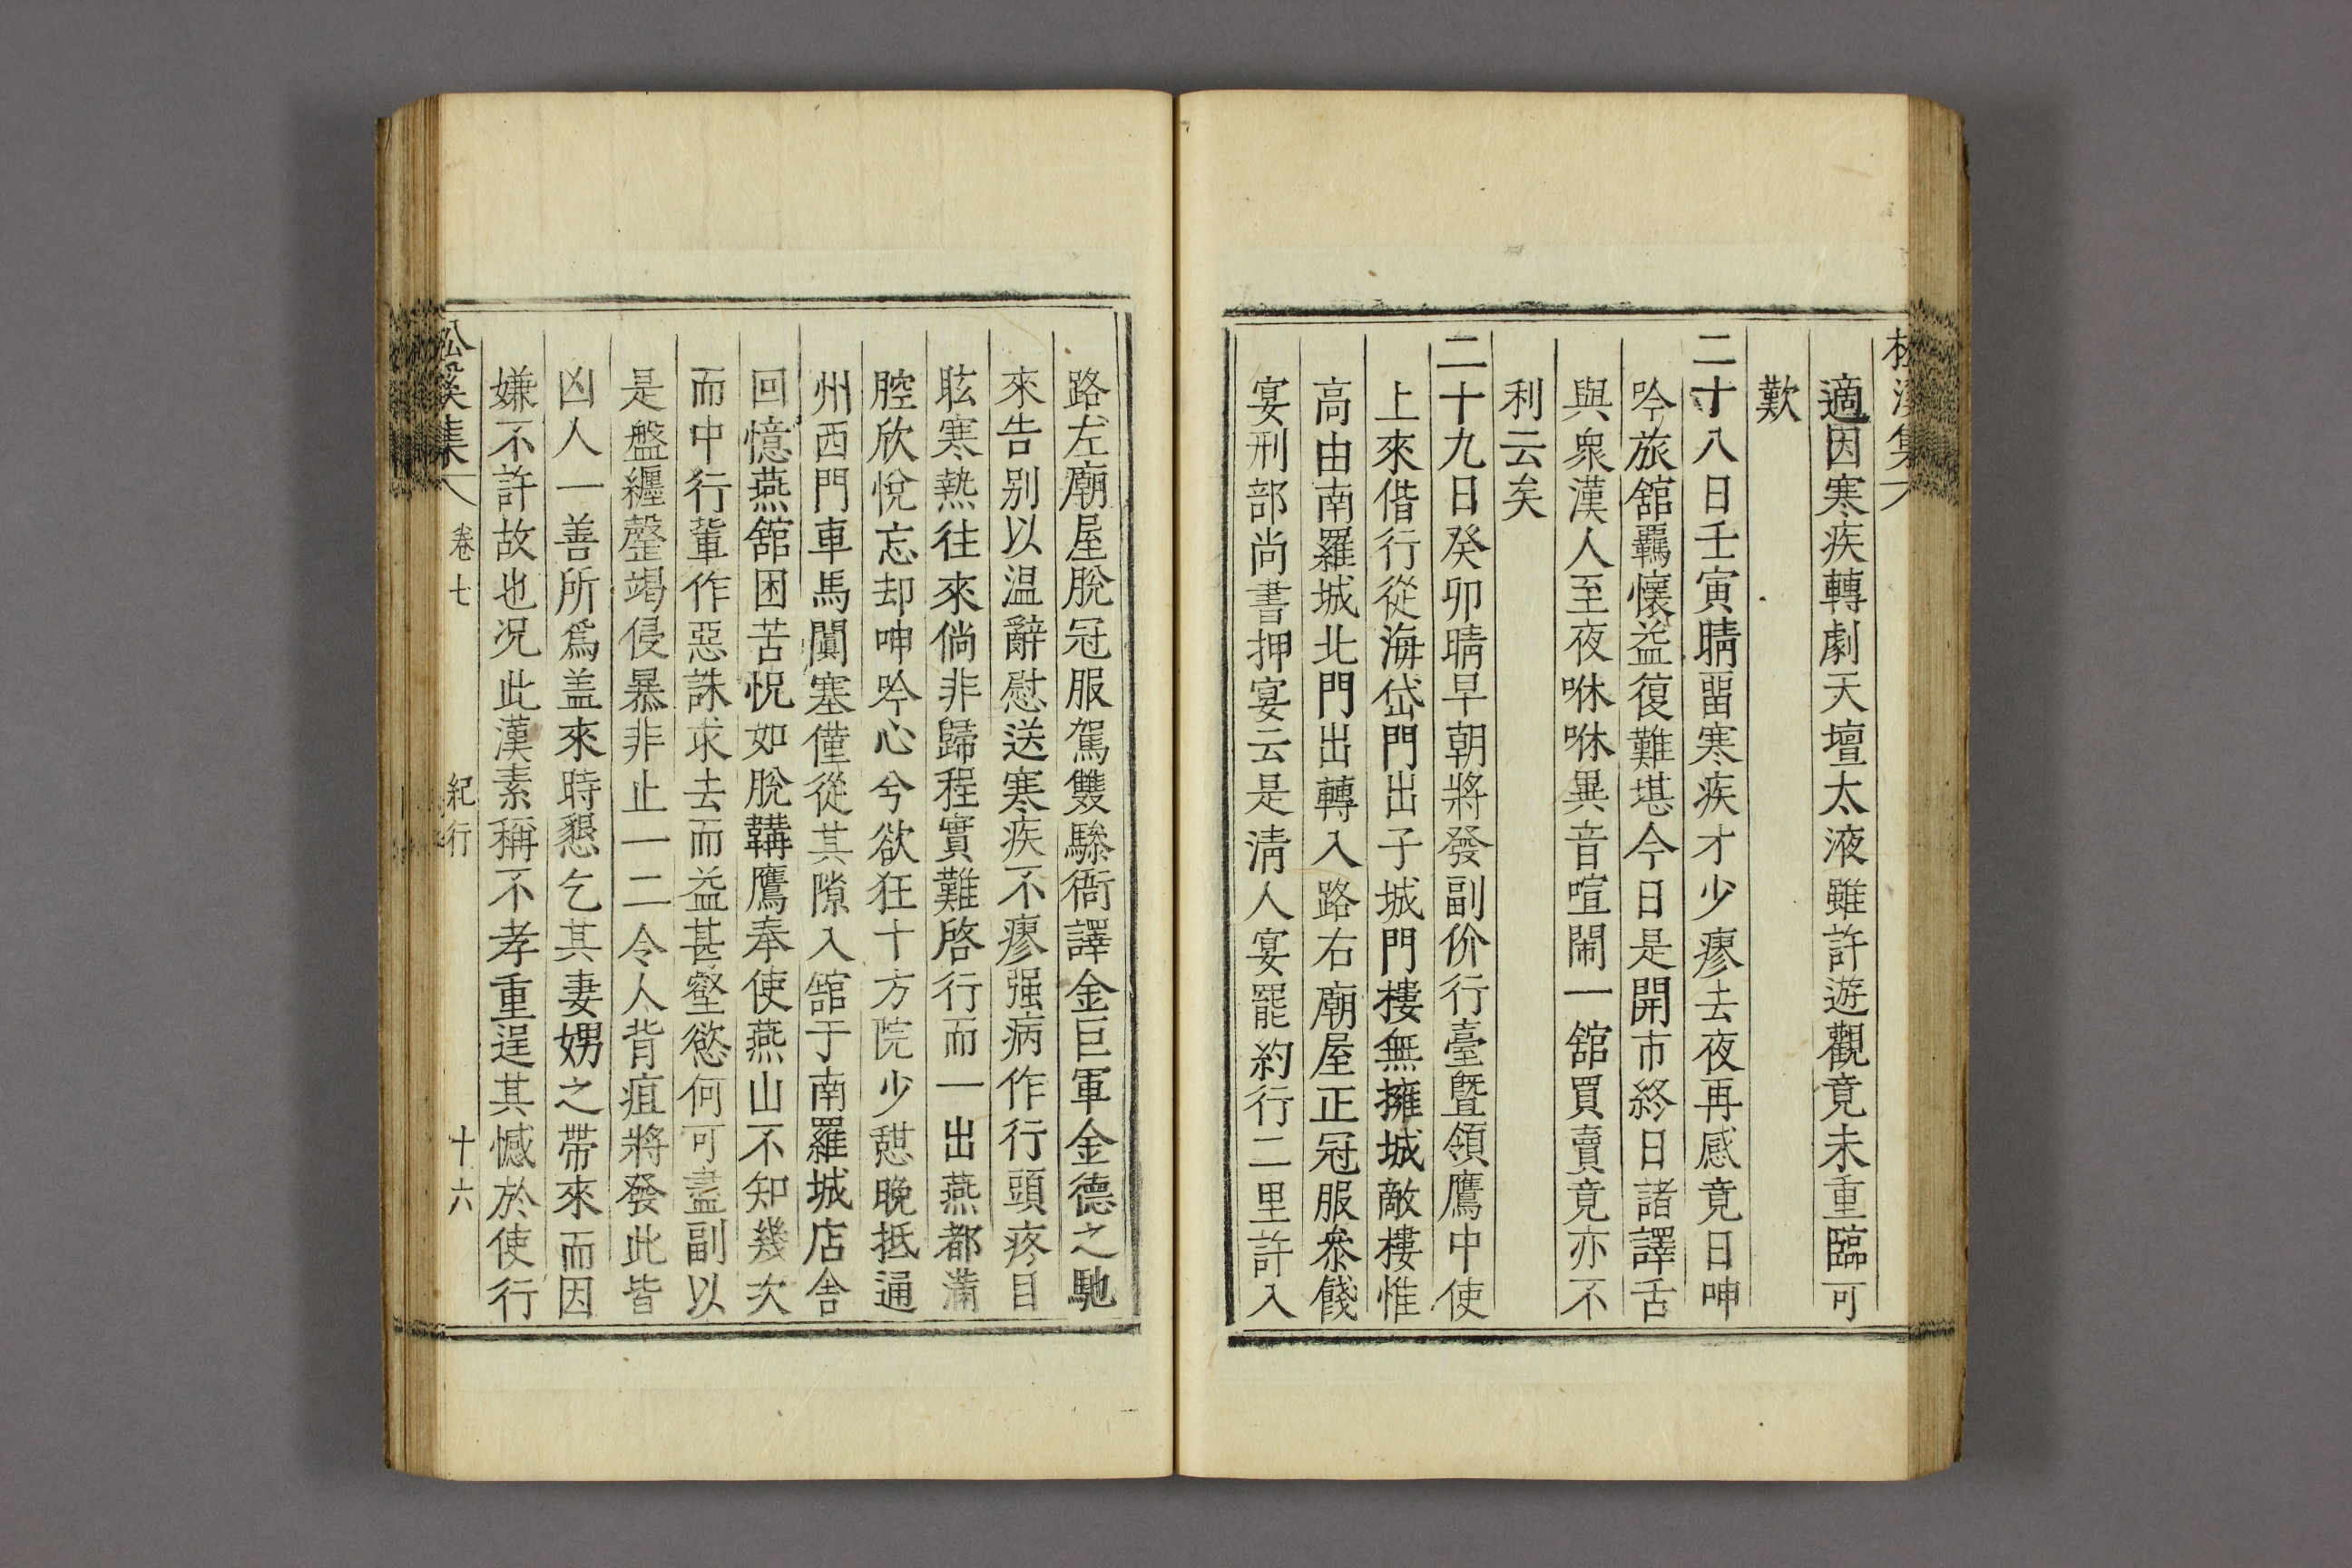 松溪集
適因寒疾轉劇天壇太液雖許遊觀竟未重臨可
歎
二十八日壬寅晴留寒疾才少瘳去夜再感竟日呻
吟旅舘羈懷益復難堪今日是開市終日諸譯舌
與衆漢人至夜咻咻異音喧閙一舘買賣竟亦不
利云矣
二十九日癸卯晴早朝將發副价行臺曁領鷹中使
上來偕行從海岱門出子城門樓無擁城敵樓惟
高由南羅城北門出轉入路右廟屋正冠服叅餞
宴刑部尙書押宴云是淸人宴罷約行二里許入
路左廟屋脫冠服駕雙驂衙譯金巨軍金德之馳
來告别以温辭慰送寒疾不瘳强病作行頭疼目
眩寒熱往來倘非歸程實難啓行而一出燕都滿
腔欣悅忘却呻吟心兮欲狂十方院少憇晩抵通
州西門車馬闐塞僅從其隙入舘于南羅城店舍
回憶燕舘困苦怳如脫鞲鷹奉使燕山不知幾次
而中行輩作惡誅求去而益甚壑慾何可盡副以
是盤纏罄竭侵暴非止一二令人背疽將發此皆
凶人一善所爲盖來時懇乞其妻娚之帶來而因
嫌不許故也况此漢素稱不孝重逞其憾於使行
松溪集 卷七 紀行 十六